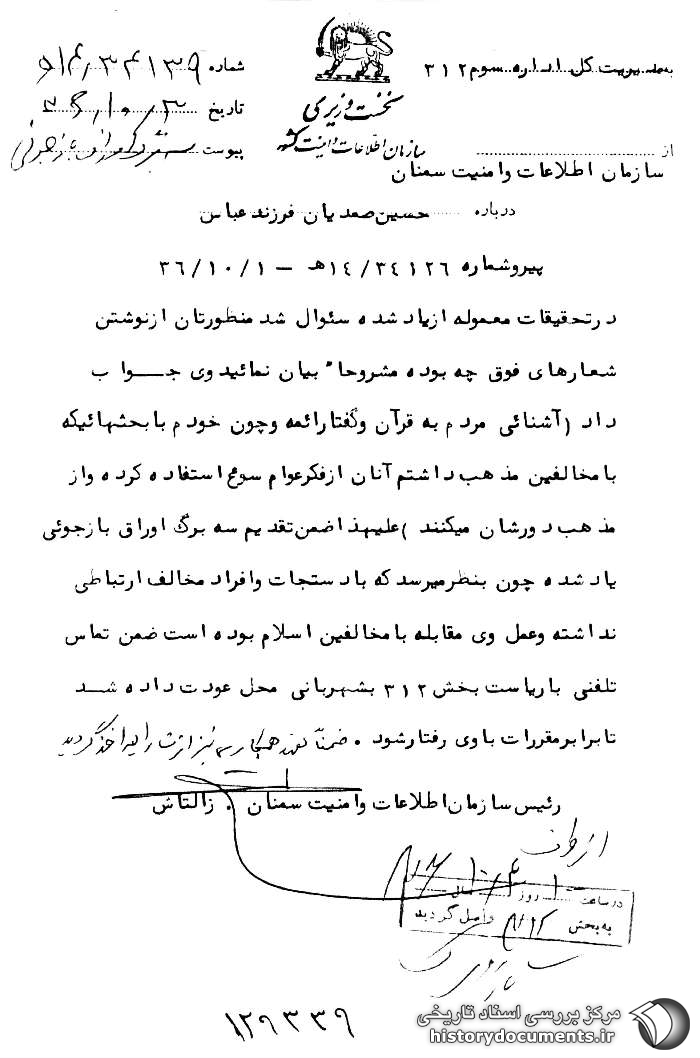 به مدیریت کل اداره سوم ۳۱۲
شماره ۳۴۱۳۹
نخست وزیری
سازمان اطلاعات و امنیت کشور
تاریخ
پیوست سه برگ اوراق بازجوئی
از
سازمان اطلاعات وامنیت سمنان
درباره حسین صمدیان فرزند عباس
پیروشماره ۱۴/۳۴۱۲۶ه‍ – ۳۶/۱۰/۱
درتحقیقات معموله ازیاد شده سئوال شد منظورتان ازنوشتن
شعارهای فوق چه بوده مشروحا" بیان نمائید وی جـــواب
داد (آشنائی مردم به قرآن وگفتارائمه وچون خودم بابحثهائیکه
بامخالفین مذهب داشتم آنان ازفکرعوام سوء استفاده کرده واز
مذهب دورشان میکنند )علیهذا ضمن تقدیم سه برگ اوراق بازجوئی
یاد شده چون بنظرمیرسد که بادستجات وافراد مخالف ارتباطی
نداشته وعمل وی مقابله بامخالفین اسلام بوده است ضمن تماس
تلفنی باریاست بخش ۳۱۲ بشهربانی محل عودت داده شــد
تابرابرمقررات باوی رفتارشود . ضمناً تعهد همکاری نیز از نامبرده اخذ گردید
رئیس سازمان اطلاعات وامنیت سمنان . زالتاش
درساعت روز سال
به بخش واصل گردید
۱۲۹۳۳۹
مرکز بررسی اسناد تاریخی
historydocuments.ir